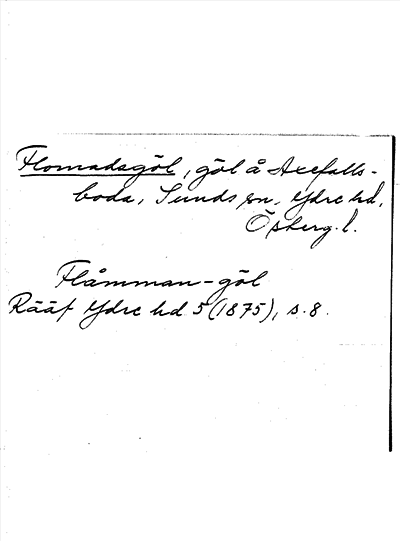 Flomadagöl, göl å Axefalls-
boda, Sunds sn, Ydre hd,
Östergl. l.
Flåmman-göl
Rääf Ydre hd 5 (1875), s. 8.